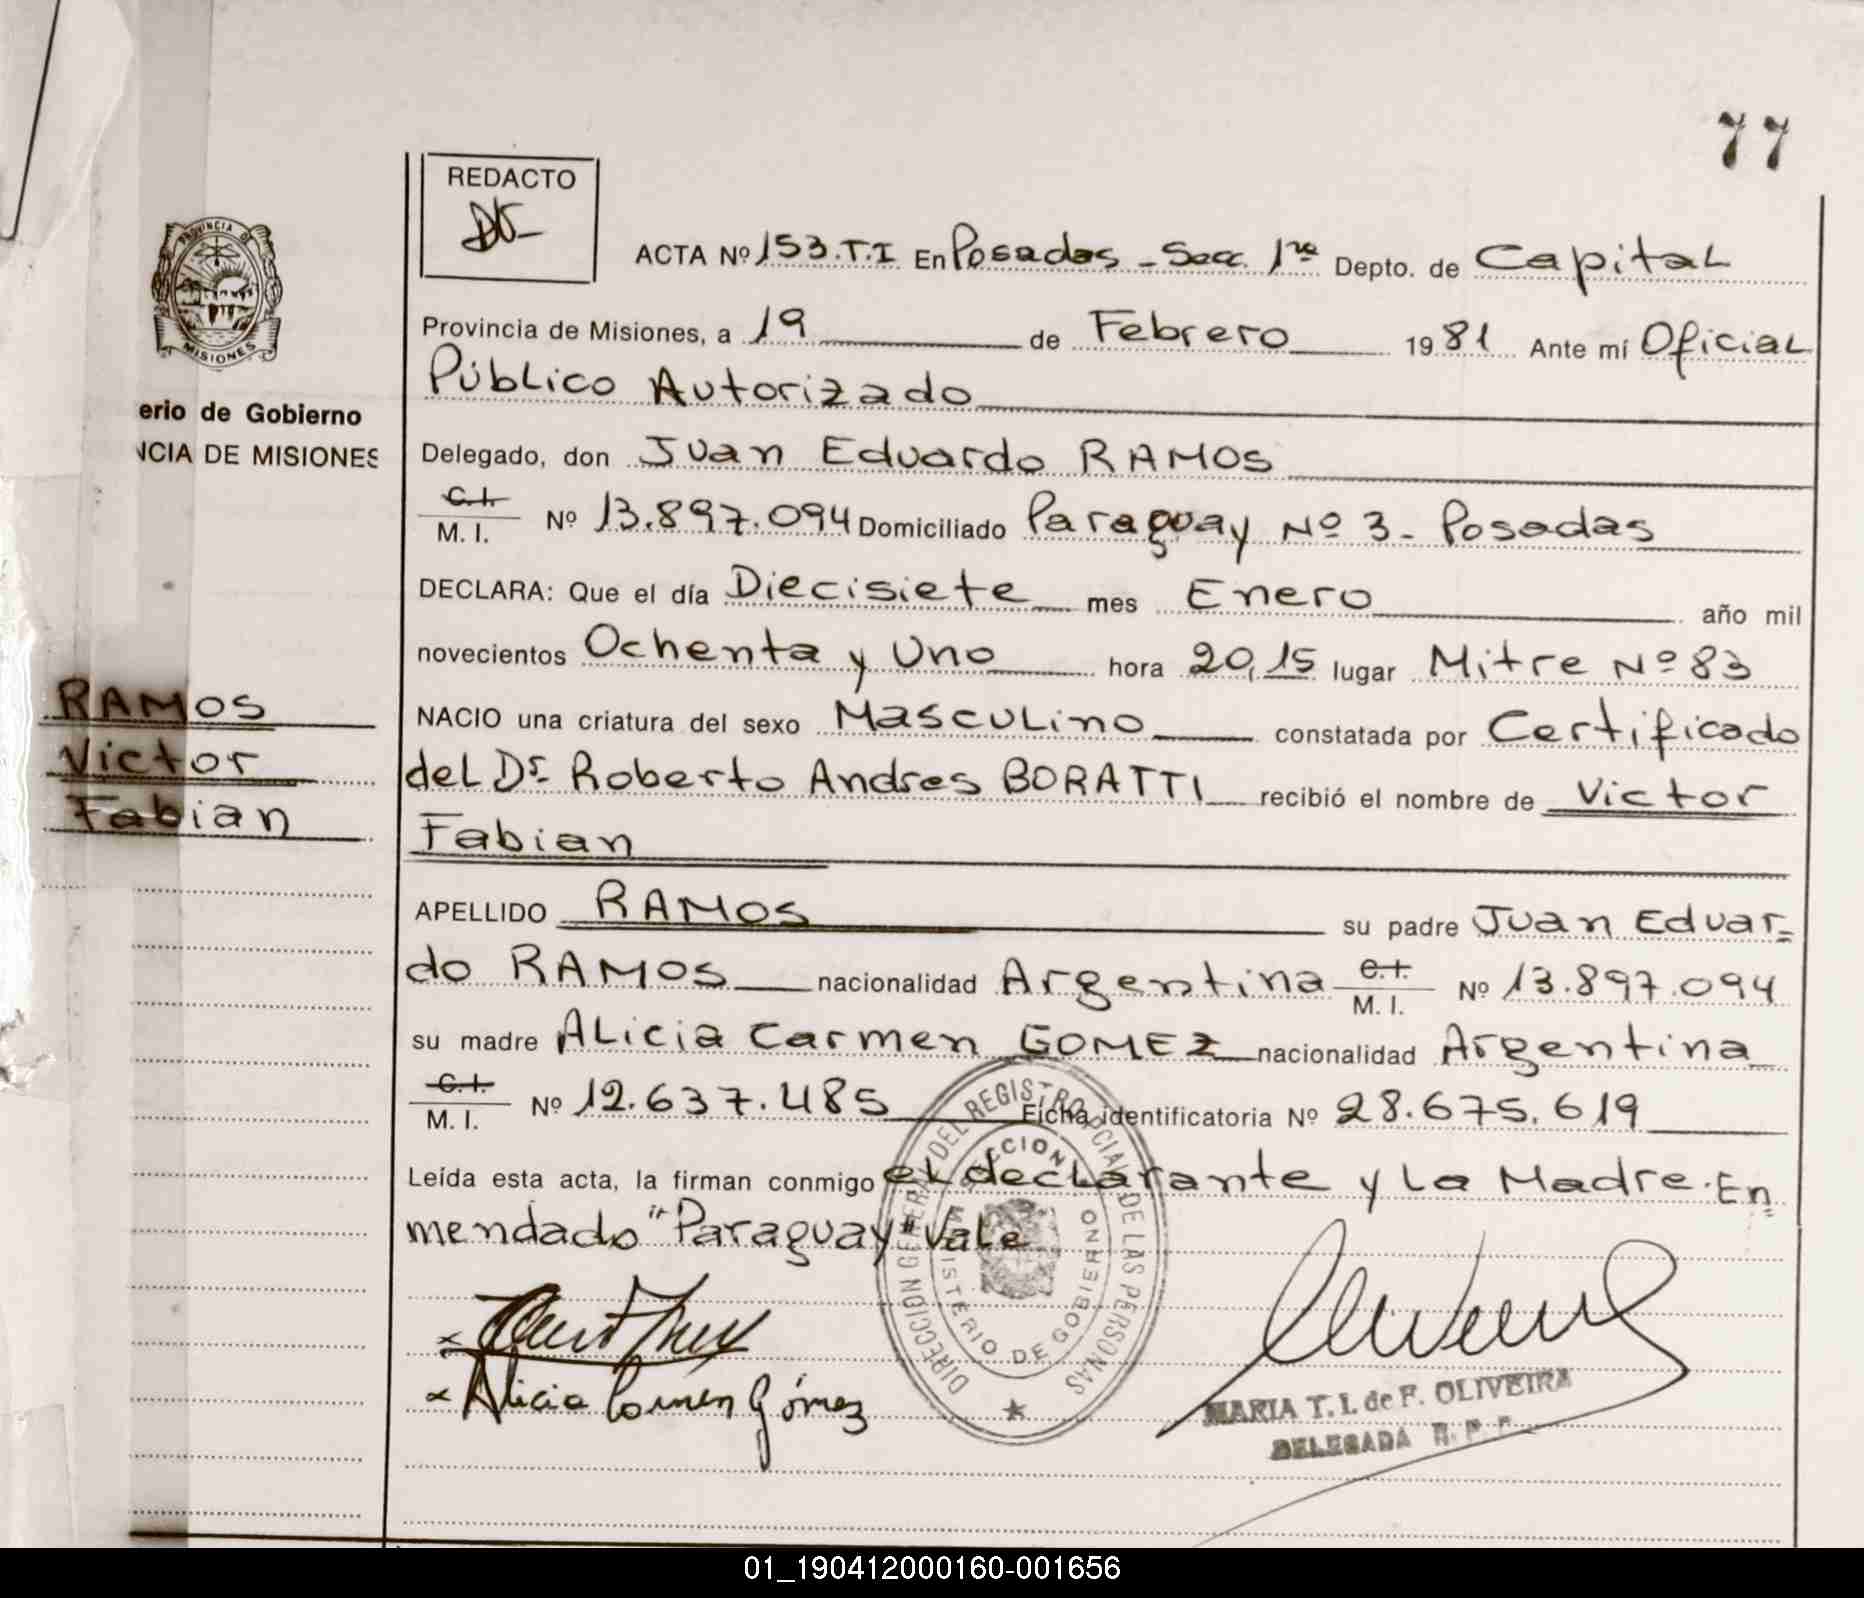 77
REDACTO
PROVINCIA DE
MISIONES
erio de Gobierno
NCIA DE MISIONES
RAMOS
Victor
Fabian
ACTA Nº 153.T.I En Posadas - Secc. 1ra Depto. de Capital
Provincia de Misiones, a 19 de Febrero 1981 Ante mí Oficial
Público Autorizado
Delegado, don Juan Eduardo RAMOS
C.I. / M. I. Nº 13.897.094 Domiciliado Paraguay Nº 3 - Posadas
DECLARA: Que el día Diecisiete mes Enero año mil
novecientos Ochenta y Uno hora 20,15 lugar Mitre Nº 83
NACIO una criatura del sexo Masculino constatada por Certificado
del Dr. Roberto Andres BORATTI recibió el nombre de Victor
Fabian
APELLIDO RAMOS su padre Juan Eduar=
do RAMOS nacionalidad Argentina C.I. / M. I. Nº 13.897.094
su madre Alicia Carmen GOMEZ nacionalidad Argentina
C.I. / M. I. Nº 12.637.485 Ficha identificatoria Nº 28.675.619
Leída esta acta, la firman conmigo el declarante y la Madre. En=
mendado "Paraguay" Vale
DIRECCION GENERAL DEL REGISTRO PCIAL. DE LAS PERSONAS
SECCION
MINISTERIO DE GOBIERNO
Alicia Carmen Gómez
MARIA T. I. de F. OLIVEIRA
DELEGADA R. P. P.
01_190412000160-001656